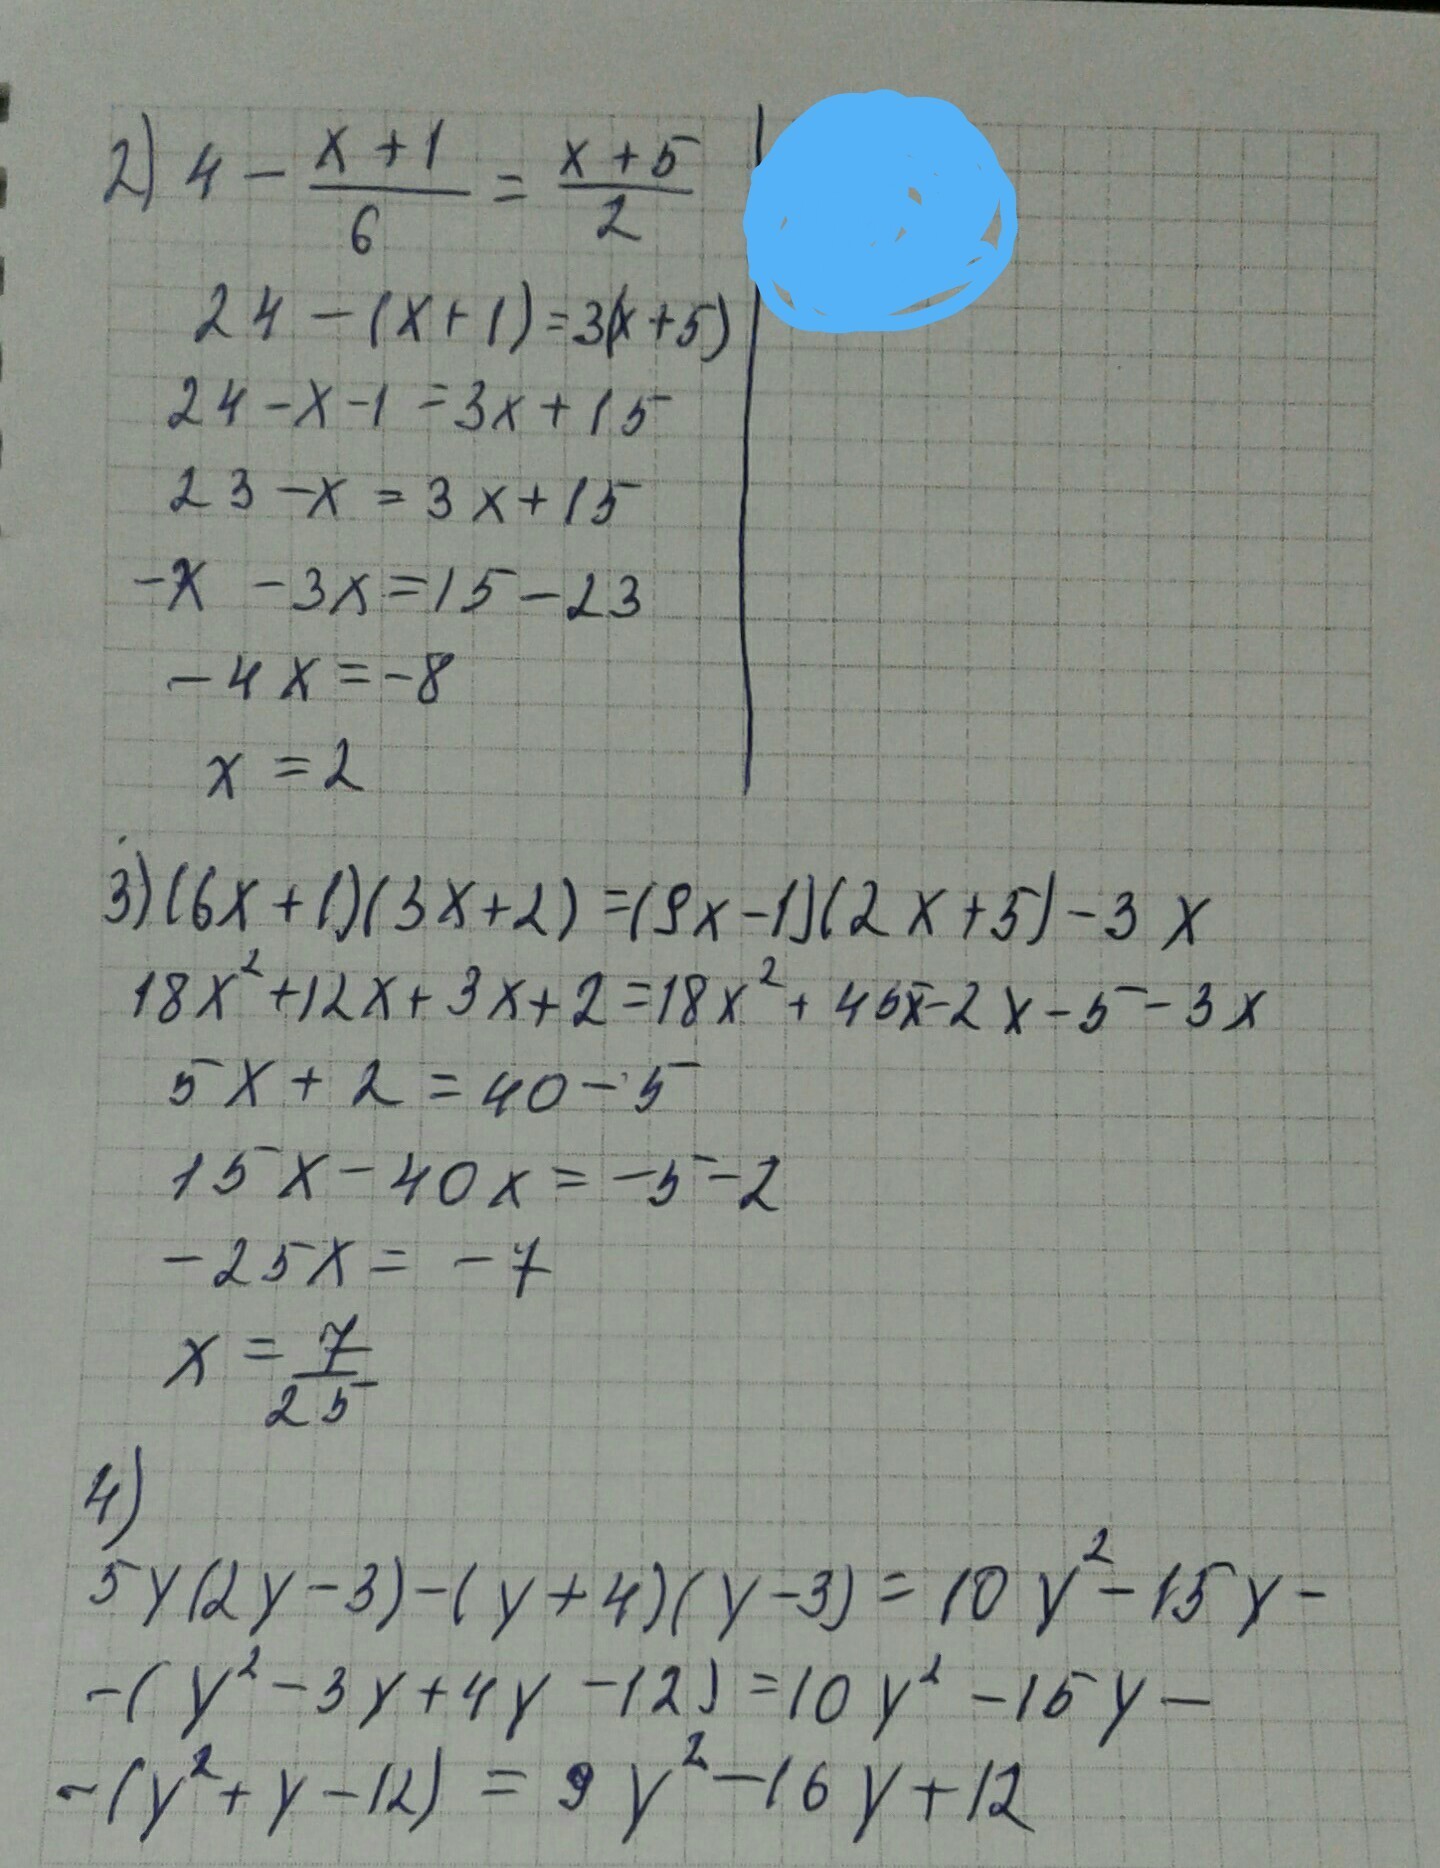 2) 4 - (x+1)/6 = (x+5)/2
24 - (x+1) = 3(x+5)
24 - x - 1 = 3x + 15
23 - x = 3x + 15
-x - 3x = 15 - 23
-4x = -8
x = 2
3) (6x+1)(3x+2) = (9x-1)(2x+5) - 3x
18x² + 12x + 3x + 2 = 18x² + 45x - 2x - 5 - 3x
5x + 2 = 40 - 5
15x - 40x = -5 - 2
-25x = -7
x = 7/25
4)
5y(2y-3) - (y+4)(y-3) = 10y² - 15y -
-(y² - 3y + 4y - 12) = 10y² - 15y -
-(y² + y - 12) = 9y² - 16y + 12